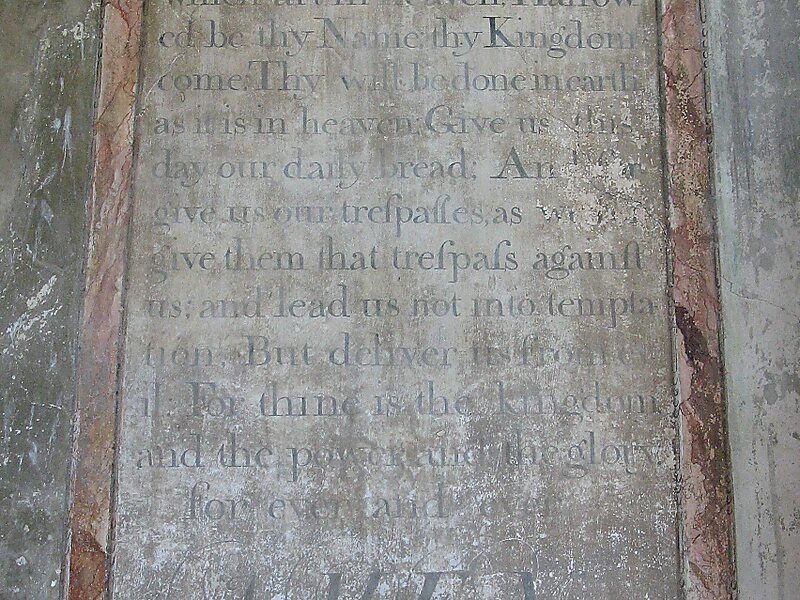 which art in heaven, Hallow
ed be thy Name; thy Kingdom
come; Thy will be done in earth
as it is in heaven; Give us this
day our daily bread; And for
give us our treſpaſſes, as we
give them that treſpaſs againſt
us; and lead us not into tempta
tion; But deliver us from ev
il; For thine is the kingdom
and the power, and the glory,
for ever and ever